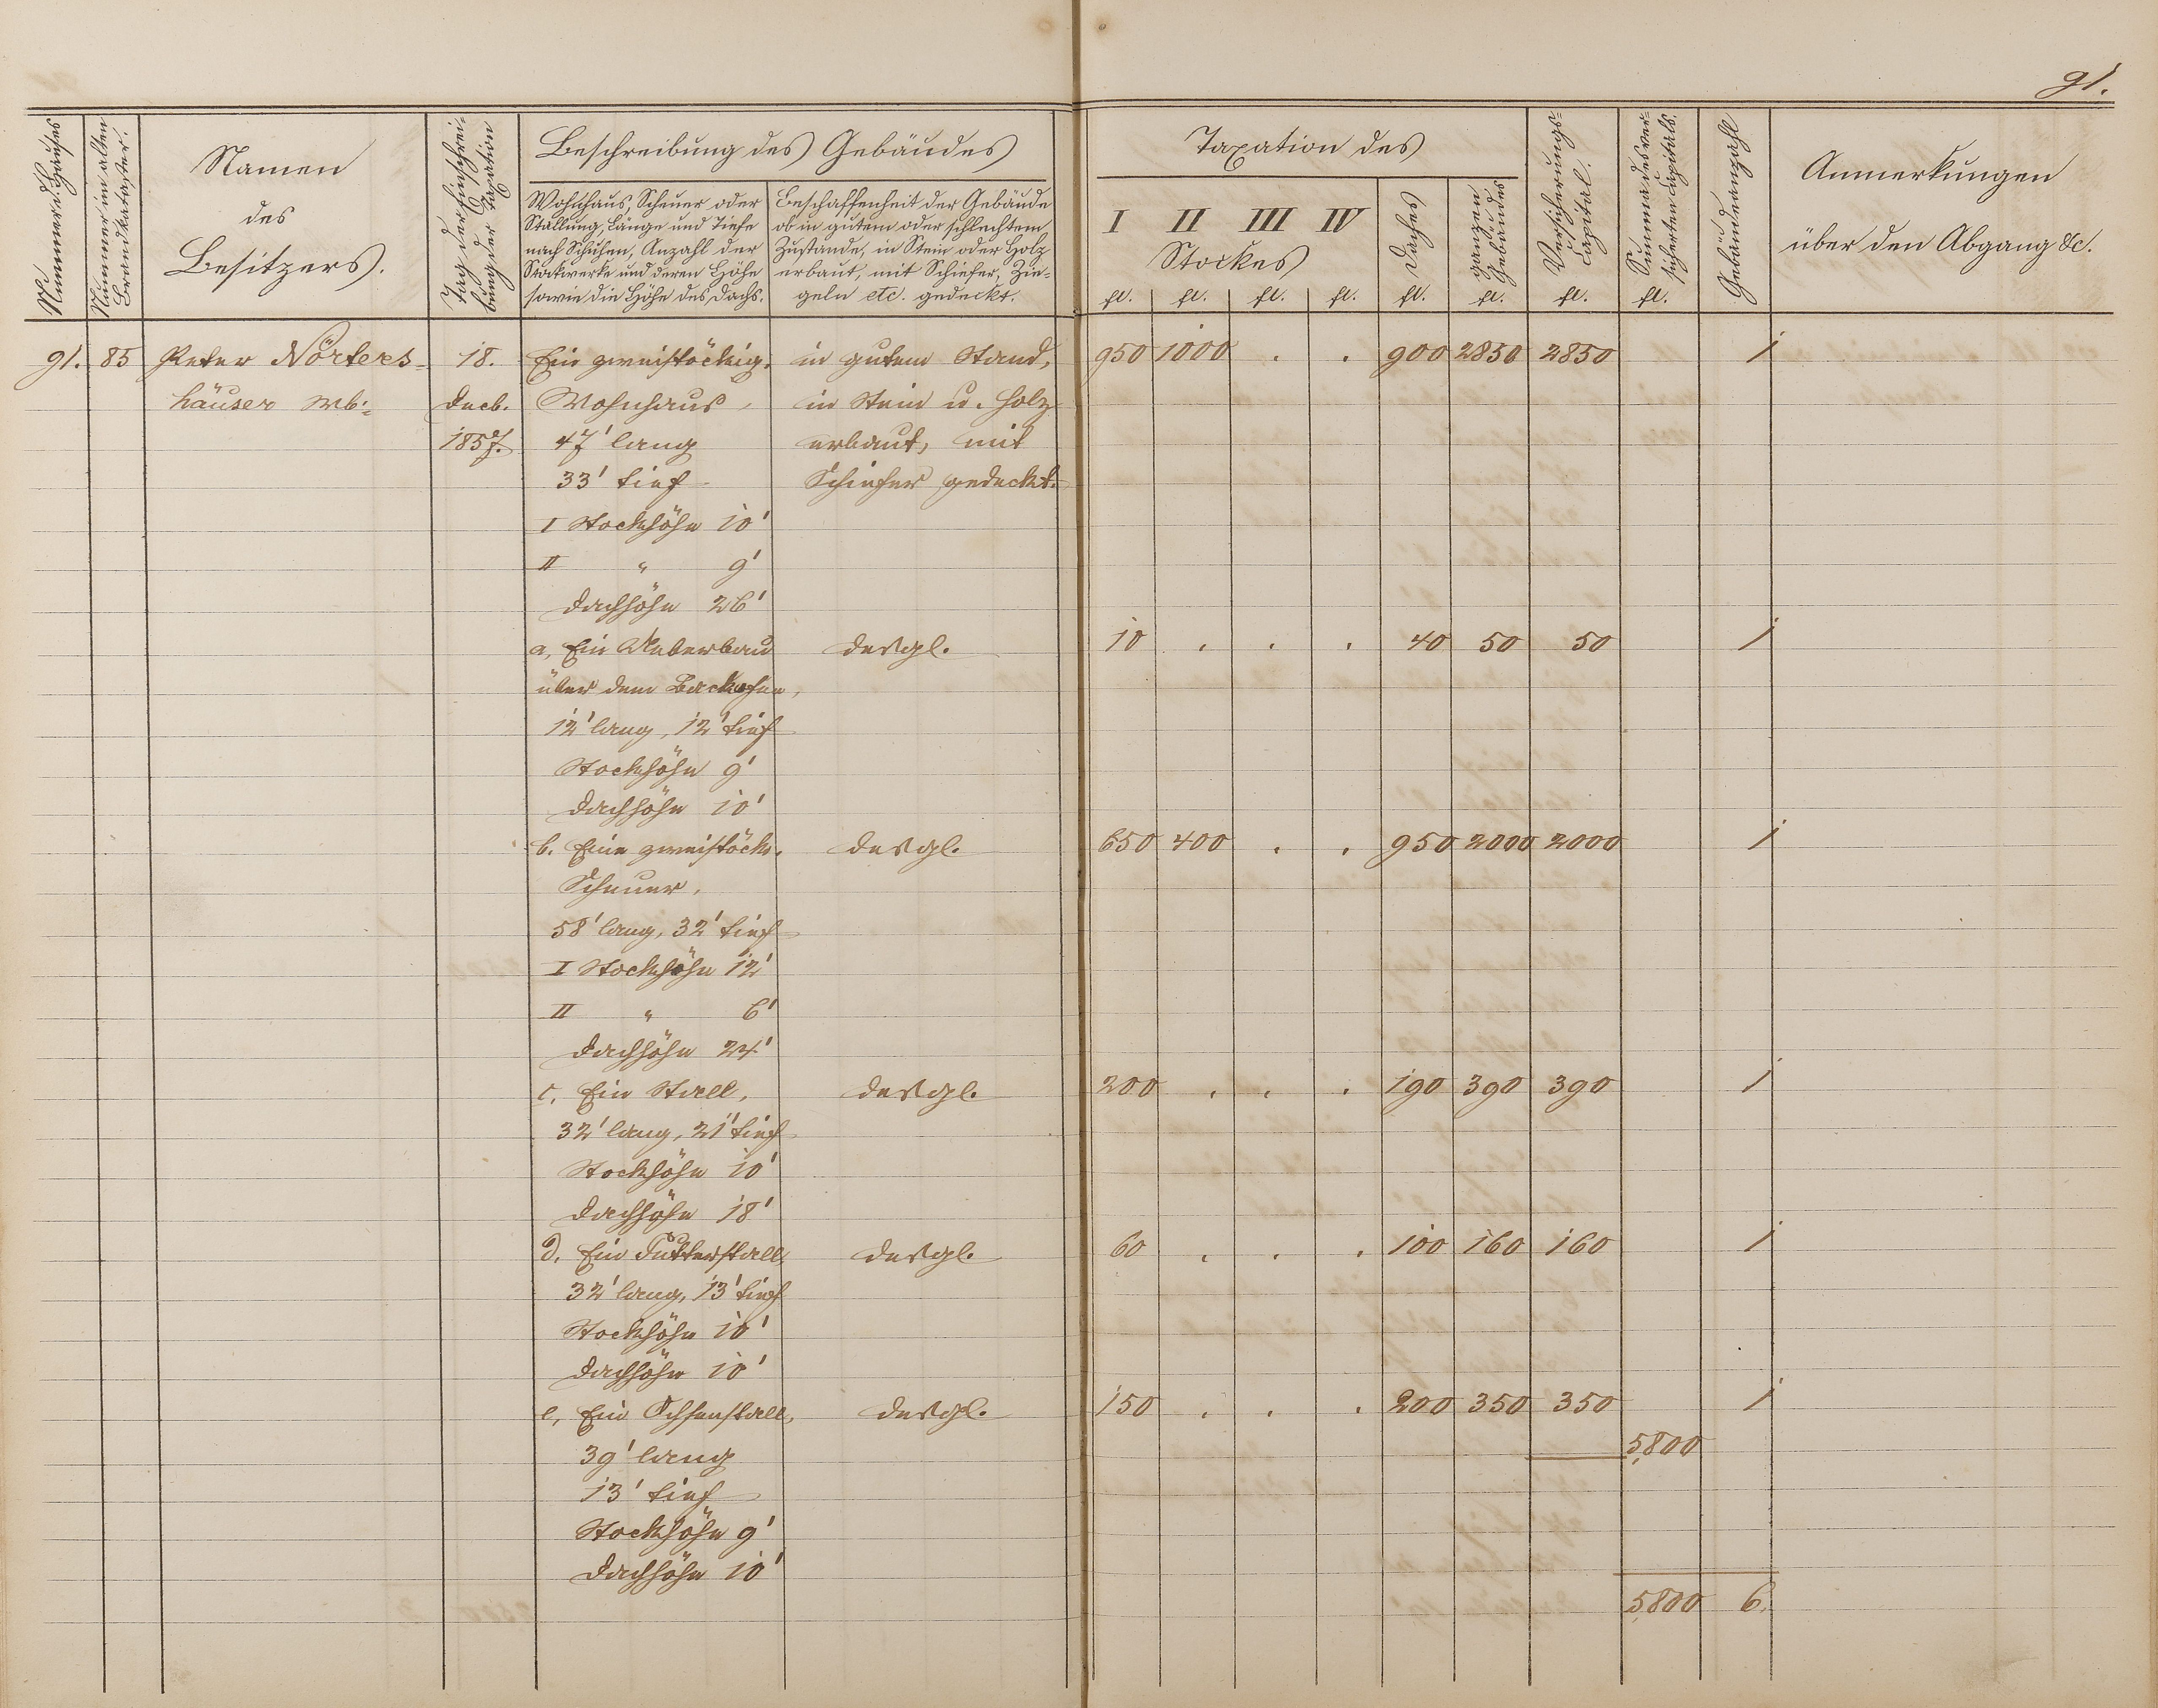 91.
Nummer d. Hauses
Nummer im alten
Brandkataster.
Namen
des
Besitzers.
Tag der Einschrei-
bung der Taxation
Beschreibung des Gebäudes
Wohnhaus, Scheuer oder
Stallung, Länge und Tiefe
nach Schuhen, Anzahl der
Stockwerke und deren Höhe
sowie die Höhe des Dachs.
Beschaffenheit der Gebäude
ob in gutem oder schlechtem
Zustande, in Stein oder Holz
erbaut, mit Schiefer, Zie-
geln etc. gedeckt.
Taxation des
I II III IV
Stockes
Daches
ganzen
Gebäudes
Versicherungs-
Capital.
Summa des ver-
sicherten Capitals.
Gebäudeanzahl
Anmerkungen
über den Abgang &c.
fl. fl. fl. fl. fl. fl. fl. fl.
91. 85 Peter Nörters- 18. Ein zweistöckig. in gutem Stand, 950 1000 . . 900 2850 2850 1
häuser Wb: Decb. Wohnhaus, in Stein u. Holz
1857. 47' lang erbaut, mit
33' tief Schiefer gedeckt.
I Stockhöhe 10'
II " 9'
Dachhöhe 26'
a, Ein Ueberbau desgl. 10 . . . 40 50 50 1
über dem Backofen,
12' lang, 12' tief
Stockhöhe 9'
Dachhöhe 10'
b. Eine zweistöck. desgl. 650 400 . . 950 2000 2000 1
Scheuer,
58' lang, 32' tief
I Stockhöhe 12'
II " 6'
Dachhöhe 24'
c. Ein Stall, desgl. 200 . . . 190 390 390 1
32' lang, 21' tief
Stockhöhe 10'
Dachhöhe 18'
d. Ein Futterstall, desgl. 60 . . . 100 160 160 1
32' lang, 13' tief
Stockhöhe 10'
Dachhöhe 10'
e, Ein Ochsenstall, desgl. 150 . . . 200 350 350 1
39' lang 5,800
13' tief
Stockhöhe 9'
Dachhöhe 10'
5,800 6.